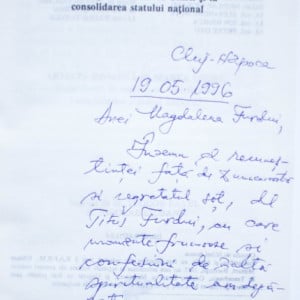 consolidarea statului național
Cluj-Napoca
19.05.1996
Anei Magdalena Furdui,
Însemn al
față de
și regretatul soț, dl
Titi Furdui, cu care
momente frumoase și
confesiuni de înaltă
spiritualitate